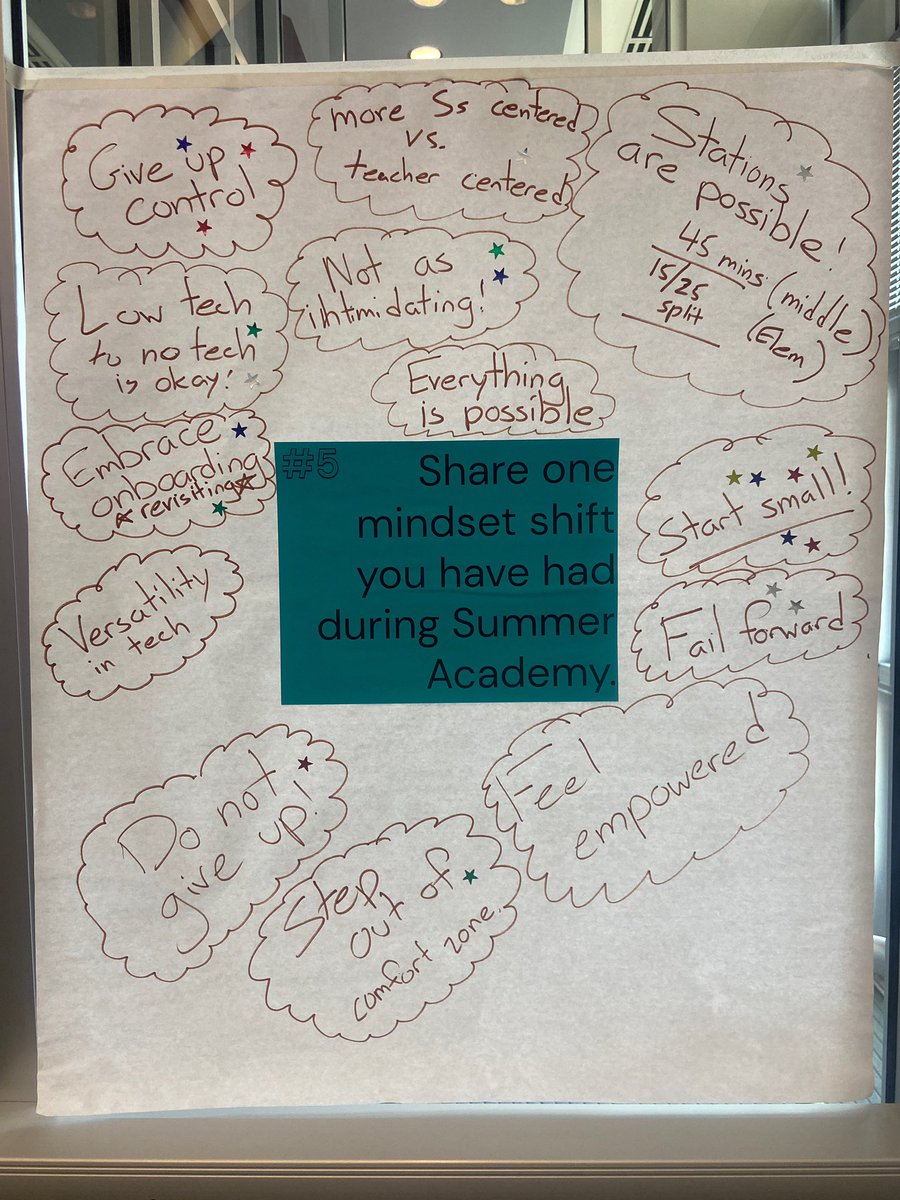 Give up
control
more Ss centered
vs.
teacher centered
Stations
are possible!
45 mins (middle)
15/25 (Elem)
split
Low tech
to no tech
is okay!
Not as
ihtimidating!
Everything
is possible
Embrace
onboarding
revisiting
#5
Share one
mindset shift
you have had
during Summer
Academy.
Start small!
Versatility
in tech
Fail forward
Do not
give up!
Step
out of
comfort zone.
Feel
empowered